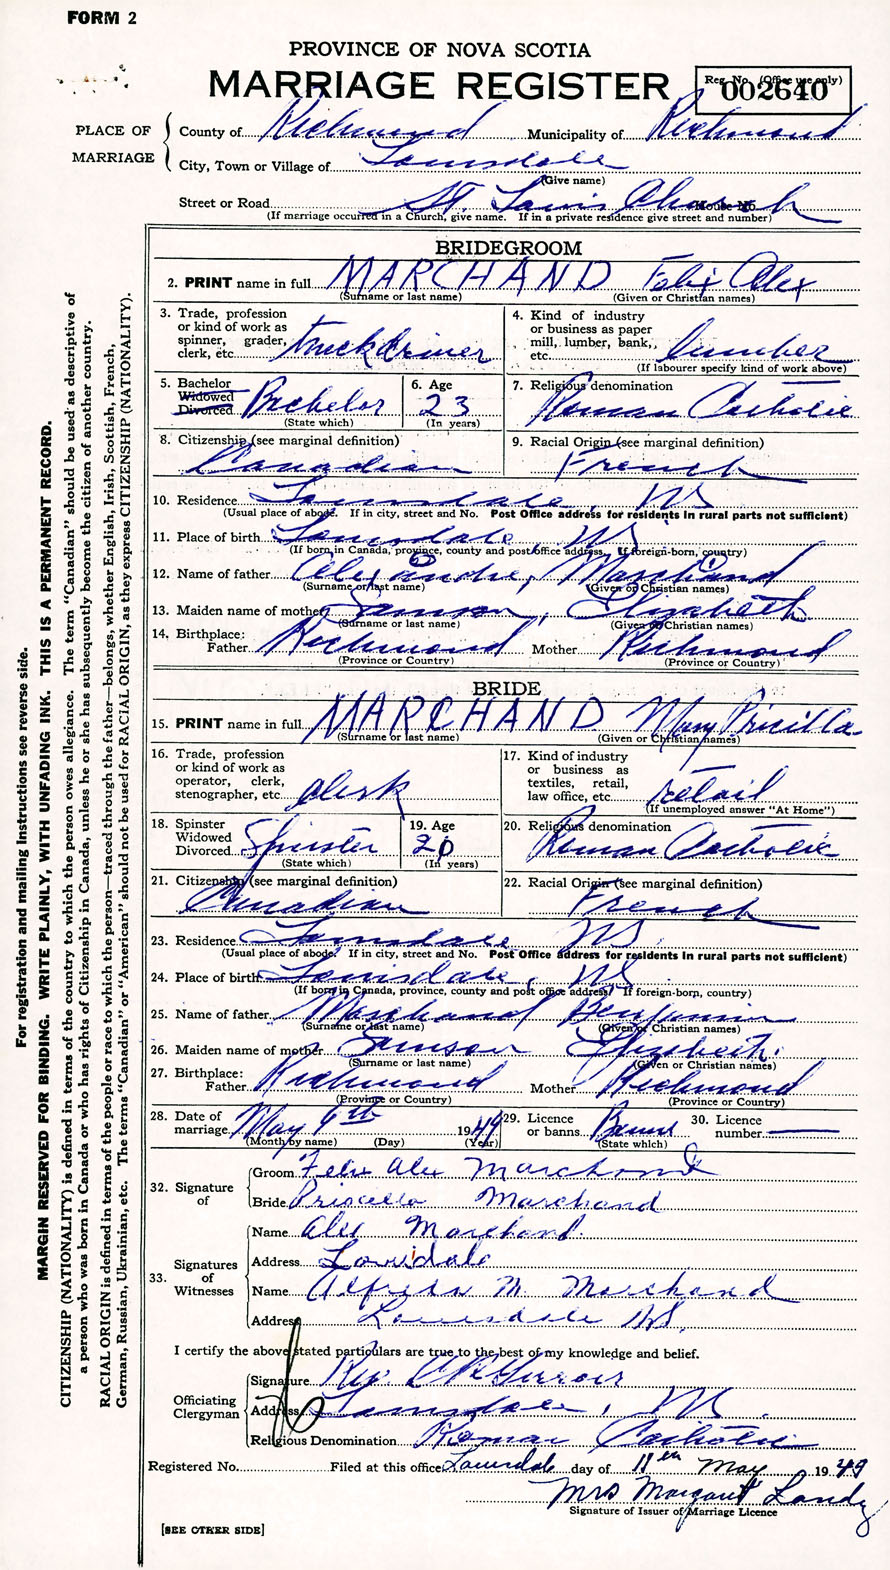 FORM 2
PROVINCE OF NOVA SCOTIA
MARRIAGE REGISTER
Reg. No. (Office use only)
002640
PLACE OF MARRIAGE
County of Richmond Municipality of Richmond
City, Town or Village of Louisdale
(Give name)
Street or Road St Louis Church House No.
(If marriage occurred in a Church, give name. If in a private residence give street and number)
BRIDEGROOM
2. PRINT name in full MARCHAND Felix Alex
(Surname or last name) (Given or Christian names)
3. Trade, profession or kind of work as spinner, grader, clerk, etc. truck driver
4. Kind of industry or business as paper mill, lumber, bank, etc. lumber
(If labourer specify kind of work above)
5. Bachelor Widowed Divorced Bachelor
(State which)
6. Age 23
(In years)
7. Religious denomination Roman Catholic
8. Citizenship (see marginal definition) Canadian
9. Racial Origin (see marginal definition) French
10. Residence Louisdale, NS
(Usual place of abode. If in city, street and No. Post Office address for residents in rural parts not sufficient)
11. Place of birth Louisdale, NS
(If born in Canada, province, county and post office address. If foreign-born, country)
12. Name of father Alexandre, Marchand
(Surname or last name) (Given or Christian names)
13. Maiden name of mother Samson, Elizabeth
(Surname or last name) (Given or Christian names)
14. Birthplace: Father Richmond Mother Richmond
(Province or Country) (Province or Country)
BRIDE
15. PRINT name in full MARCHAND Mary Pricilla
(Surname or last name) (Given or Christian names)
16. Trade, profession or kind of work as operator, clerk, stenographer, etc. clerk
17. Kind of industry or business as textiles, retail, law office, etc. retail
(If unemployed answer "At Home")
18. Spinster Widowed Divorced Spinster
(State which)
19. Age 20
(In years)
20. Religious denomination Roman Catholic
21. Citizenship (see marginal definition) Canadian
22. Racial Origin (see marginal definition) French
23. Residence Louisdale NS
(Usual place of abode. If in city, street and No. Post Office address for residents in rural parts not sufficient)
24. Place of birth Louisdale, NS
(If born in Canada, province, county and post office address. If foreign-born, country)
25. Name of father Marchand Benjamin
(Surname or last name) (Given or Christian names)
26. Maiden name of mother Samson Elizabeth
(Surname or last name) (Given or Christian names)
27. Birthplace: Father Richmond Mother Richmond
(Province or Country) (Province or Country)
28. Date of marriage May 6th 1949
(Month by name) (Day) (Year)
29. Licence or banns Banns
(State which)
30. Licence number
32. Signature of
Groom Felix Alex Marchand
Bride Priscilla Marchand
33. Signatures of Witnesses
Name Alex Marchand
Address Louisdale
Name Alfreda M. Marchand
Address Louisdale N.S.
I certify the above stated particulars are true to the best of my knowledge and belief.
Officiating Clergyman
Signature Rev.
Address Louisdale, NS.
Religious Denomination Roman Catholic
Registered No. Filed at this office Louisdale day of 11th May 1949
Mrs Margaret Landry
Signature of Issuer of Marriage Licence
[SEE OTHER SIDE]
For registration and mailing Instructions see reverse side.
MARGIN RESERVED FOR BINDING. WRITE PLAINLY, WITH UNFADING INK. THIS IS A PERMANENT RECORD.
CITIZENSHIP (NATIONALITY) is defined in terms of the country to which the person owes allegiance. The term "Canadian" should be used as descriptive of
a person who was born in Canada or who has rights of Citizenship in Canada, unless he or she has subsequently become the citizen of another country.
RACIAL ORIGIN is defined in terms of the people or race to which the person—traced through the father—belongs, whether English, Irish, Scottish, French,
German, Russian, Ukrainian, etc. The terms "Canadian" or "American" should not be used for RACIAL ORIGIN, as they express CITIZENSHIP (NATIONALITY).